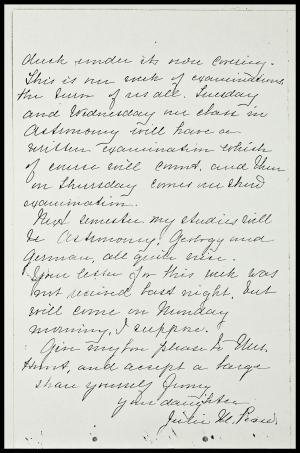 dusk under its own covering.
This is our week of examinations
the turn of us all. Tuesday
and Wednesday our class in
Astronomy will have a
written examination which
of course will count, and then
on Thursday comes our third
examination.
Next semester my studies will
be Astronomy, Geology and
German, all quite nice.
Your letter for this week was
not received last night, but
will come on Monday
morning, I suppose.
Give my love please to Mrs.
Hunt, and accept a large
share yourself from
your daughter
Julia M.